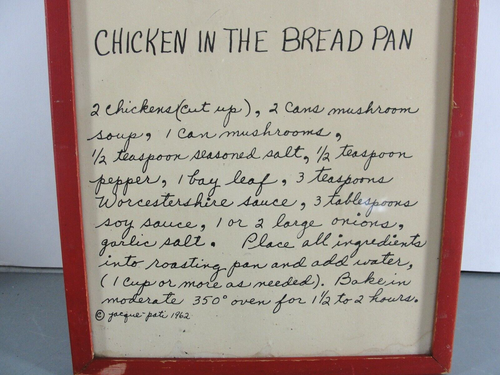 CHICKEN IN THE BREAD PAN
2 chickens (cut up), 2 cans mushroom
soup, 1 can mushrooms,
1/2 teaspoon seasoned salt, 1/2 teaspoon
pepper, 1 bay leaf, 3 teaspoons
Worcestershire sauce, 3 tablespoons
soy sauce, 1 or 2 large onions,
garlic salt. Place all ingredients
into roasting pan and add water,
(1 cup or more as needed). Bake in
moderate 350° oven for 1 1/2 to 2 hours.
© jacque-pati 1962